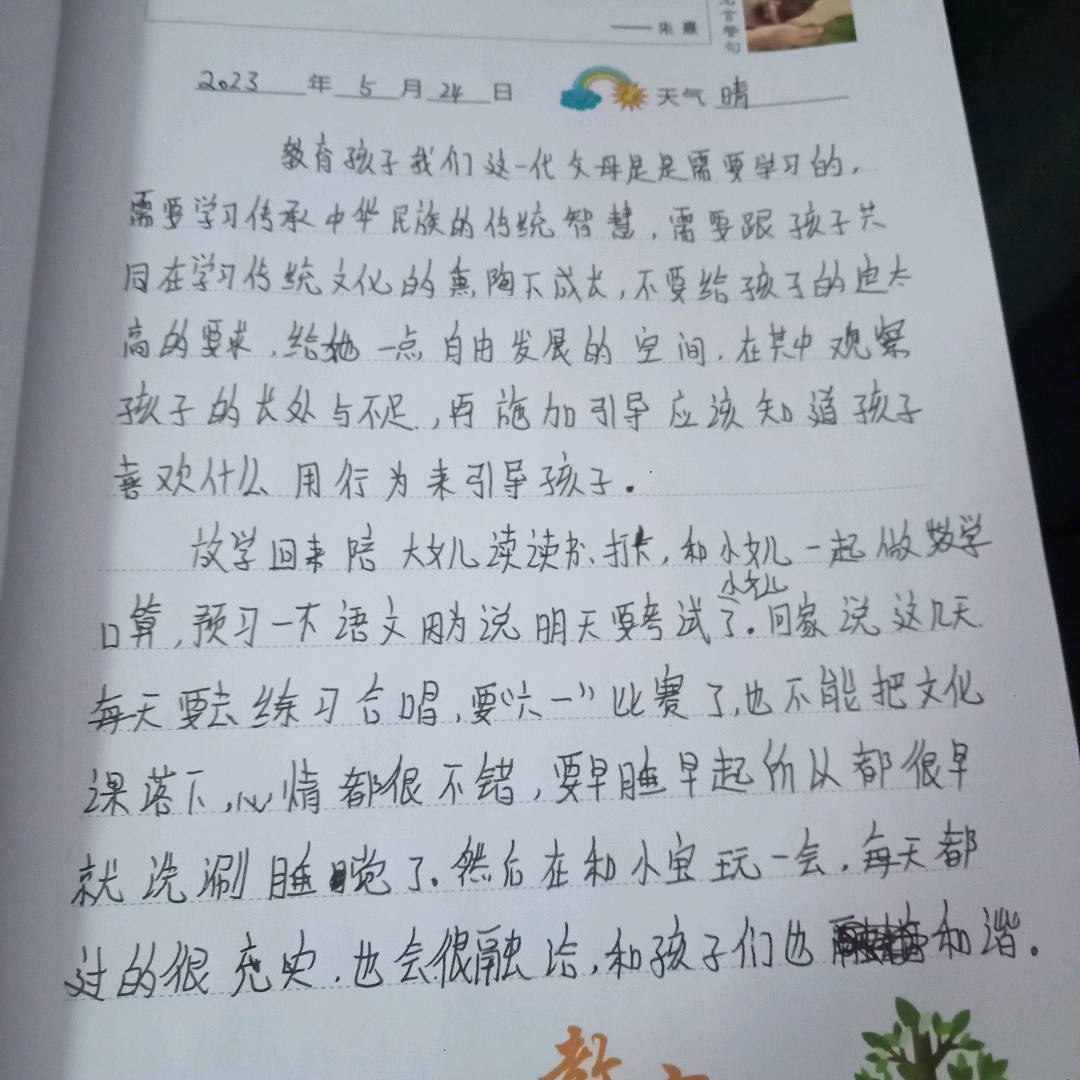 ——朱熹
名言警句
2023年5月24日 天气 晴
教育孩子我们这一代父母是是需要学习的,
需要学习传承中华民族的传统智慧,需要跟孩子共
同在学习传统文化的熏陶下成长,不要给孩子的定太
高的要求,给她一点自由发展的空间,在其中观察
孩子的长处与不足,再施加引导应该知道孩子
喜欢什么用行为来引导孩子.
放学回来陪大女儿读读书、打卡,和小女儿一起做数学
小女儿
口算,预习一下语文因为说明天要考试了.回家说这几天
每天要去练习合唱,要“六一”比赛了,也不能把文化
课落下,心情都很不错,要早睡早起所以都很早
就洗涮睡觉了.然后在和小宝玩一会,每天都
过的很充实.也会很融洽,和孩子们也和谐.
教